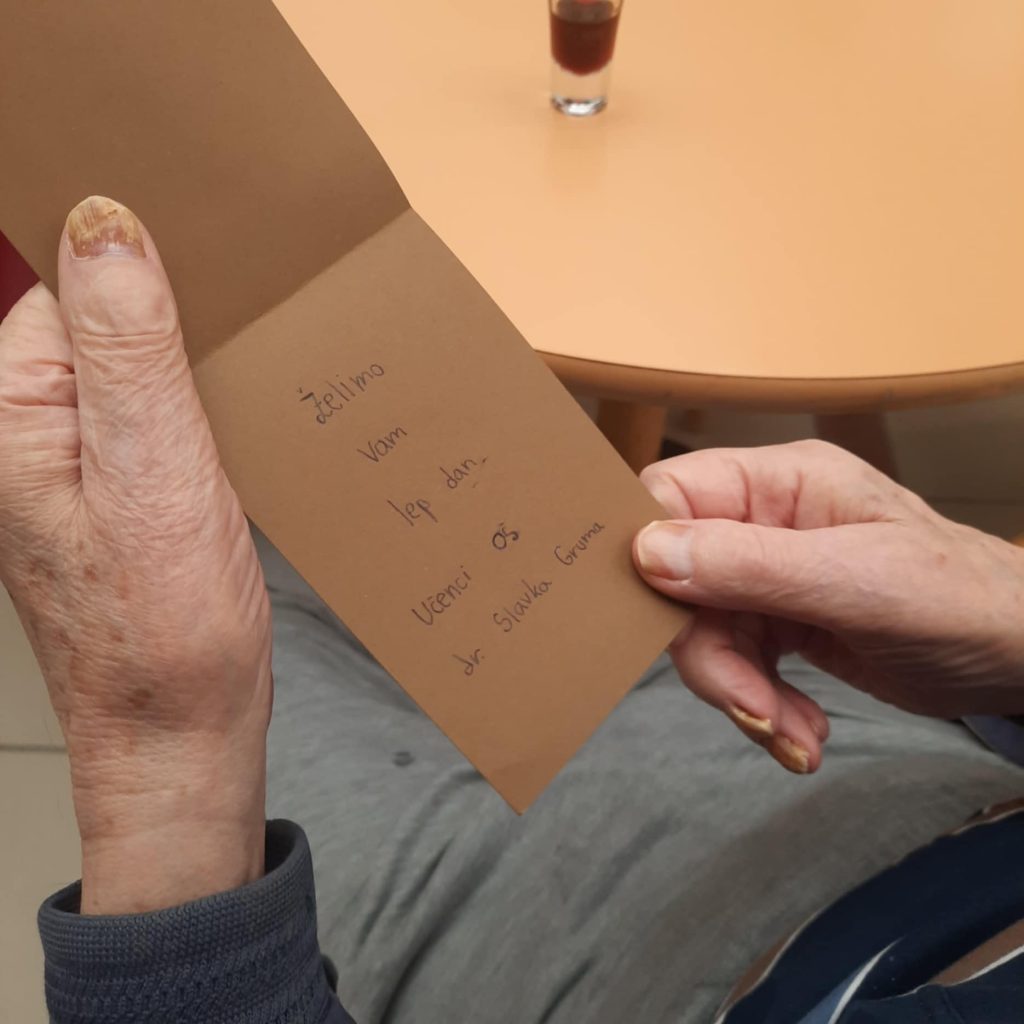 Želimo
vam
lep dan.
Učenci OŠ
dr. Slavka Gruma